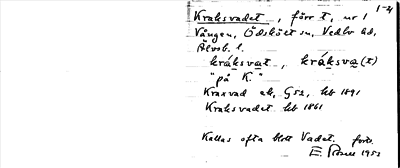 1-21
Kraksvadet, förr t, nr 1
Vången, Ödskölt sn, Vedbo hd,
Älvsb. l.
kráksvat, kráksva(t)
"på K."
Kraxvad ek, G52, hb 1891
Kraksvadet hb 1861
Kallas ofta blott Vadet. forts.
E. Rosell 1953